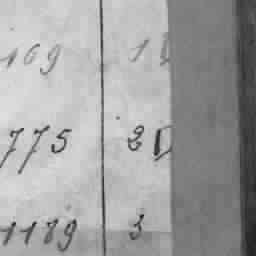 169 1
775 2
1189 3